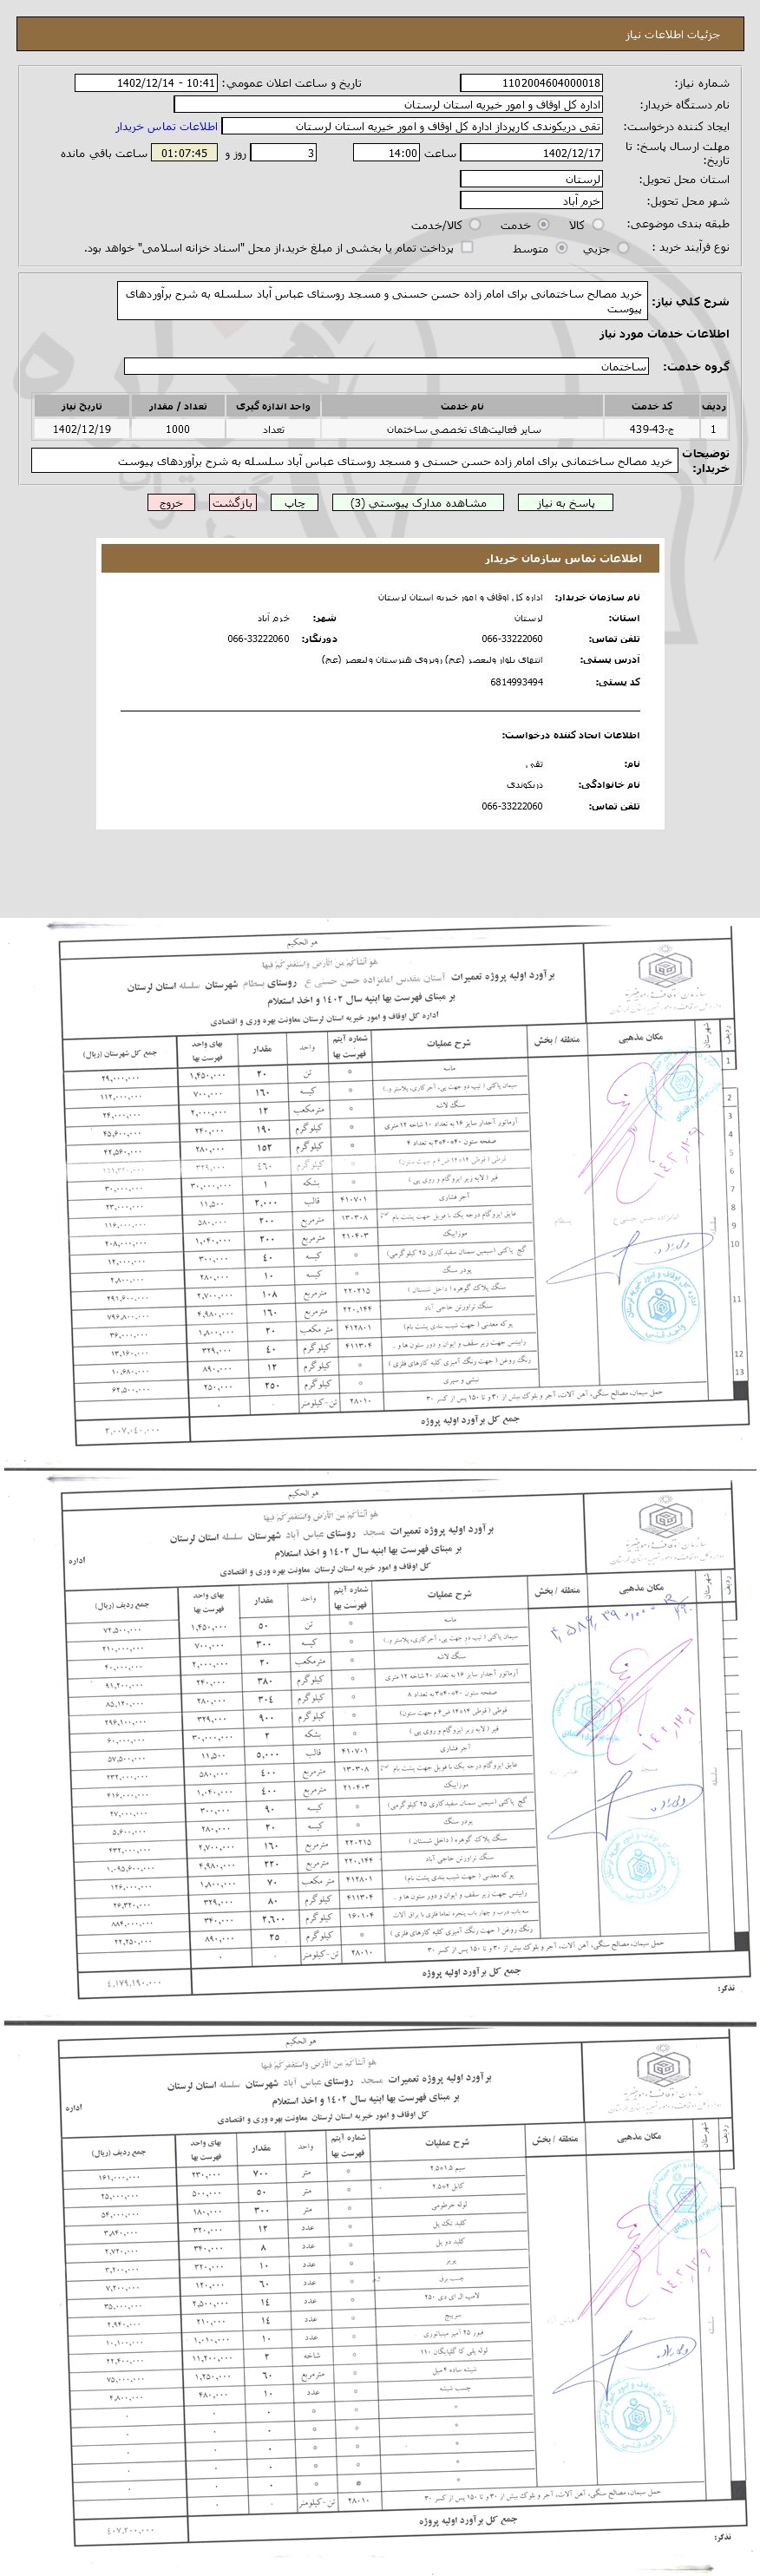 جزئیات اطلاعات نیاز
شماره نیاز: 1102004604000018
تاریخ و ساعت اعلان عمومی: 10:41 - 1402/12/14
نام دستگاه خریدار: اداره کل اوقاف و امور خیریه استان لرستان
ایجاد کننده درخواست: تقی دریکوندی کارپرداز اداره کل اوقاف و امور خیریه استان لرستان
اطلاعات تماس خریدار
مهلت ارسال پاسخ: تا تاریخ: 1402/12/17 ساعت 14:00
3 روز و 01:07:45 ساعت باقي مانده
استان محل تحویل: لرستان
شهر محل تحویل: خرم آباد
طبقه بندی موضوعی: کالا خدمت کالا/خدمت
نوع فرآیند خرید : جزیی متوسط پرداخت تمام یا بخشی از مبلغ خرید،از محل "اسناد خزانه اسلامی" خواهد بود.
شرح کلي نیاز: خرید مصالح ساختمانی برای امام زاده حسن حسنی و مسجد روستای عباس آباد سلسله به شرح برآوردهای
پیوست
اطلاعات خدمات مورد نیاز
گروه خدمت: ساختمان
ردیف کد خدمت نام خدمت واحد اندازه گیری تعداد / مقدار تاریخ نیاز
1 ج-43-439 سایر فعالیت‌های تخصصی ساختمان تعداد 1000 1402/12/19
توضیحات خریدار: خرید مصالح ساختمانی برای امام زاده حسن حسنی و مسجد روستای عباس آباد سلسله به شرح برآوردهای پیوست
پاسخ به نیاز
مشاهده مدارک پیوستي (3)
چاپ
بازگشت
خروج
اطلاعات تماس سازمان خریدار
نام سازمان خریدار: اداره کل اوقاف و امور خیریه استان لرستان
استان: لرستان شهر: خرم آباد
تلفن تماس: 066-33222060 دورنگار: 066-33222060
آدرس پستی: انتهای بلوار ولیعصر (عج) روبروی هنرستان ولیعصر (عج)
کد پستی: 6814993494
اطلاعات ایجاد کننده درخواست:
نام: تقی
نام خانوادگی: دریکوندی
تلفن تماس: 066-33222060
هو الحکیم
هُوَ أَنْشَأَکُمْ مِنَ الْأَرْضِ وَاسْتَعْمَرَکُمْ فِیهَا
برآورد اولیه پروژه تعمیرات آستان مقدس امامزاده حسن حسنی ع روستای بسطام شهرستان سلسله استان لرستان
بر مبنای فهرست بها ابنیه سال ۱۴۰۲ و اخذ استعلام
اداره کل اوقاف و امور خیریه استان لرستان معاونت بهره وری و اقتصادی
ردیف شهرستان مکان مذهبی منطقه / بخش شرح عملیات شماره آیتم فهرست بها واحد مقدار بهای واحد فهرست بها جمع کل شهرستان (ریال)
ماسه * تن ۲۰ ۱,۴۵۰,۰۰۰ ۲۹,۰۰۰,۰۰۰
سیمان پاکتی ( تیپ دو جهت پی، آجرکاری، پلاستر و..) * کیسه ۱۶۰ ۷۰۰,۰۰۰ ۱۱۲,۰۰۰,۰۰۰
سنگ لاشه * مترمکعب ۱۲ ۲,۰۰۰,۰۰۰ ۲۴,۰۰۰,۰۰۰
آرماتور آجدار سایز ۱۶ به تعداد ۱۰ شاخه ۱۲ متری * کیلوگرم ۱۹۰ ۲۴۰,۰۰۰ ۴۵,۶۰۰,۰۰۰
صفحه ستون ۴۰*۴۰*۳ به تعداد ۴ * کیلوگرم ۱۵۲ ۲۸۰,۰۰۰ ۴۲,۵۶۰,۰۰۰
قوطی ( قوطی ۱۴*۱۴ ض۶ م جهت ستون) * کیلوگرم ۴۶۰ ۳۲۹,۰۰۰
قیر ( لایه زیر ایزوگام و روی پی ) * بشکه ۱ ۳۰,۰۰۰,۰۰۰ ۳۰,۰۰۰,۰۰۰
آجر فشاری ۴۱۰۷۰۱ قالب ۲,۰۰۰ ۱۱,۵۰۰ ۲۳,۰۰۰,۰۰۰
عایق ایزوگام درجه یک با فویل جهت پشت بام ۱۳۰۳۰۸ مترمربع ۲۰۰ ۵۸۰,۰۰۰ ۱۱۶,۰۰۰,۰۰۰
موزاییک ۲۱۰۴۰۳ مترمربع ۲۰۰ ۱,۰۴۰,۰۰۰ ۲۰۸,۰۰۰,۰۰۰
گچ پاکتی (سیمین سمنان سفیدکاری ۲۵ کیلوگرمی) * کیسه ۴۰ ۳۰۰,۰۰۰ ۱۲,۰۰۰,۰۰۰
پودر سنگ * کیسه ۱۰ ۲۸۰,۰۰۰ ۲,۸۰۰,۰۰۰
سنگ پلاک گوهره ( داخل شبستان ) ۲۲۰۲۱۵ مترمربع ۱۰۸ ۲,۷۰۰,۰۰۰ ۲۹۱,۶۰۰,۰۰۰
سنگ تراورتن حاجی آباد ۲۲۰,۱۴۴ مترمربع ۱۶۰ ۴,۹۸۰,۰۰۰ ۷۹۶,۸۰۰,۰۰۰
پوکه معدنی ( جهت شیب بندی پشت بام) ۴۱۲۸۰۱ متر مکعب ۲۰ ۱,۸۰۰,۰۰۰ ۳۶,۰۰۰,۰۰۰
رابیتس جهت زیر سقف و ایوان و دور ستون ها و .. ۴۱۱۳۰۴ کیلوگرم ۴۰ ۳۲۹,۰۰۰ ۱۳,۱۶۰,۰۰۰
رنگ روغن ( جهت رنگ آمیزی کلیه کارهای فلزی ) * کیلوگرم ۱۲ ۸۹۰,۰۰۰ ۱۰,۶۸۰,۰۰۰
نبشی و سپری * کیلوگرم ۲۵۰ ۲۵۰,۰۰۰ ۶۲,۵۰۰,۰۰۰
حمل سیمان، مصالح سنگی، آهن آلات، آجر و بلوک بیش از ۳۰ و تا ۱۵۰ پس از کسر ۳۰ ۲۸۰۱۰ تن-کیلومتر ۰ ۰
جمع کل برآورد اولیه پروژه ۲,۰۰۷,۰۴۰,۰۰۰
هو الحکیم
هُوَ أَنْشَأَکُمْ مِنَ الْأَرْضِ وَاسْتَعْمَرَکُمْ فِیهَا
برآورد اولیه پروژه تعمیرات مسجد روستای عباس آباد شهرستان سلسله استان لرستان
بر مبنای فهرست بها ابنیه سال ۱۴۰۲ و اخذ استعلام
اداره کل اوقاف و امور خیریه استان لرستان معاونت بهره وری و اقتصادی
ردیف شهرستان مکان مذهبی منطقه / بخش شرح عملیات شماره آیتم فهرست بها واحد مقدار بهای واحد فهرست بها جمع ردیف (ریال)
ماسه * تن ۵۰ ۱,۴۵۰,۰۰۰ ۷۲,۵۰۰,۰۰۰
سیمان پاکتی ( تیپ دو جهت پی، آجرکاری، پلاستر و..) * کیسه ۳۰۰ ۷۰۰,۰۰۰ ۲۱۰,۰۰۰,۰۰۰
سنگ لاشه * مترمکعب ۲۰ ۲,۰۰۰,۰۰۰ ۴۰,۰۰۰,۰۰۰
آرماتور آجدار سایز ۱۶ به تعداد ۲۰ شاخه ۱۲ متری * کیلوگرم ۳۸۰ ۲۴۰,۰۰۰ ۹۱,۲۰۰,۰۰۰
صفحه ستون ۴۰*۴۰*۳ به تعداد ۸ * کیلوگرم ۳۰۴ ۲۸۰,۰۰۰ ۸۵,۱۲۰,۰۰۰
قوطی ( قوطی ۱۴*۱۴ ض۶ م جهت ستون) * کیلوگرم ۹۰۰ ۳۲۹,۰۰۰ ۲۹۶,۱۰۰,۰۰۰
قیر ( لایه زیر ایزوگام و روی پی ) * بشکه ۲ ۳۰,۰۰۰,۰۰۰ ۶۰,۰۰۰,۰۰۰
آجر فشاری ۴۱۰۷۰۱ قالب ۵,۰۰۰ ۱۱,۵۰۰ ۵۷,۵۰۰,۰۰۰
عایق ایزوگام درجه یک با فویل جهت پشت بام ۱۳۰۳۰۸ مترمربع ۴۰۰ ۵۸۰,۰۰۰ ۲۳۲,۰۰۰,۰۰۰
موزاییک ۲۱۰۴۰۳ مترمربع ۴۰۰ ۱,۰۴۰,۰۰۰ ۴۱۶,۰۰۰,۰۰۰
گچ پاکتی (سیمین سمنان سفیدکاری ۲۵ کیلوگرمی) * کیسه ۹۰ ۳۰۰,۰۰۰ ۲۷,۰۰۰,۰۰۰
پودر سنگ * کیسه ۲۰ ۲۸۰,۰۰۰ ۵,۶۰۰,۰۰۰
سنگ پلاک گوهره ( داخل شبستان ) ۲۲۰۲۱۵ مترمربع ۱۶۰ ۲,۷۰۰,۰۰۰ ۴۳۲,۰۰۰,۰۰۰
سنگ تراورتن حاجی آباد ۲۲۰,۱۴۴ مترمربع ۲۲۰ ۴,۹۸۰,۰۰۰ ۱,۰۹۵,۶۰۰,۰۰۰
پوکه معدنی ( جهت شیب بندی پشت بام) ۴۱۲۸۰۱ متر مکعب ۷۰ ۱,۸۰۰,۰۰۰ ۱۲۶,۰۰۰,۰۰۰
رابیتس جهت زیر سقف و ایوان و دور ستون ها و .. ۴۱۱۳۰۴ کیلوگرم ۸۰ ۳۲۹,۰۰۰ ۲۶,۳۲۰,۰۰۰
سه باب درب و چهار باب پنجره تماما فلزی با یراق آلات ۱۶۰۱۰۴ کیلوگرم ۲,۶۰۰ ۳۴۰,۰۰۰ ۸۸۴,۰۰۰,۰۰۰
رنگ روغن ( جهت رنگ آمیزی کلیه کارهای فلزی ) * کیلوگرم ۲۵ ۸۹۰,۰۰۰ ۲۲,۲۵۰,۰۰۰
حمل سیمان، مصالح سنگی، آهن آلات، آجر و بلوک بیش از ۳۰ و تا ۱۵۰ پس از کسر ۳۰ ۲۸۰۱۰ تن-کیلومتر ۰ ۰
جمع کل برآورد اولیه پروژه ۴,۱۷۹,۱۹۰,۰۰۰
تذکر:
هو الحکیم
هُوَ أَنْشَأَکُمْ مِنَ الْأَرْضِ وَاسْتَعْمَرَکُمْ فِیهَا
برآورد اولیه پروژه تعمیرات مسجد روستای عباس آباد شهرستان سلسله استان لرستان
بر مبنای فهرست بها ابنیه سال ۱۴۰۲ و اخذ استعلام
اداره کل اوقاف و امور خیریه استان لرستان معاونت بهره وری و اقتصادی
ردیف شهرستان مکان مذهبی منطقه / بخش شرح عملیات شماره آیتم فهرست بها واحد مقدار بهای واحد فهرست بها جمع ردیف (ریال)
سیم ۱.۵*۲.۵ * متر ۷۰۰ ۲۳۰,۰۰۰ ۱۶۱,۰۰۰,۰۰۰
کابل ۲*۲.۵ * متر ۵۰ ۵۰۰,۰۰۰ ۲۵,۰۰۰,۰۰۰
لوله خرطومی * متر ۳۰۰ ۱۸۰,۰۰۰ ۵۴,۰۰۰,۰۰۰
کلید تک پل * عدد ۱۲ ۳۲۰,۰۰۰ ۳,۸۴۰,۰۰۰
کلید دو پل * عدد ۸ ۳۴۰,۰۰۰ ۲,۷۲۰,۰۰۰
پریز * عدد ۱۰ ۳۲۰,۰۰۰ ۳,۲۰۰,۰۰۰
چسب برق * عدد ۶۰ ۱۲۰,۰۰۰ ۷,۲۰۰,۰۰۰
لامپ ال ای دی ۲۵۰ * عدد ۱۴ ۲,۵۰۰,۰۰۰ ۳۵,۰۰۰,۰۰۰
سرپیچ * عدد ۱۴ ۲۱۰,۰۰۰ ۲,۹۴۰,۰۰۰
فیوز ۲۵ آمپر مینیاتوری * عدد ۱۰ ۱,۰۱۰,۰۰۰ ۱۰,۱۰۰,۰۰۰
لوله پلی کا گلپایگان ۱۱۰ * شاخه ۲ ۱۱,۲۰۰,۰۰۰ ۲۲,۴۰۰,۰۰۰
شیشه ساده ۴میل * مترمربع ۶۰ ۱,۲۵۰,۰۰۰ ۷۵,۰۰۰,۰۰۰
چسب شیشه * عدد ۱۰ ۴۸۰,۰۰۰ ۴,۸۰۰,۰۰۰
حمل سیمان، مصالح سنگی، آهن آلات، آجر و بلوک بیش از ۳۰ و تا ۱۵۰ پس از کسر ۳۰ ۲۸۰۱۰ تن-کیلومتر ۰ ۰
جمع کل برآورد اولیه پروژه ۴۰۷,۲۰۰,۰۰۰
تذکر: